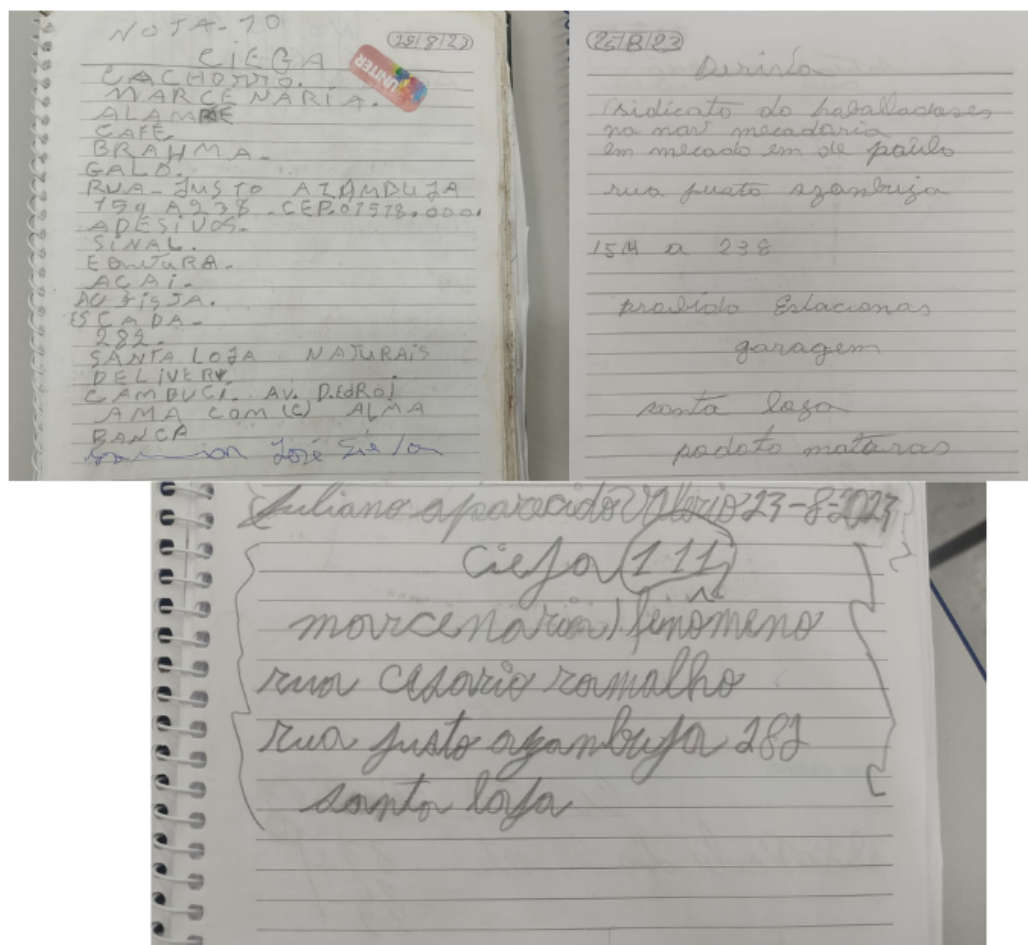 NOTA-10
25/8/23
CIEGA
UNITER
CACHORRO.
MARCENARÍA.
CAFÉ.
BRAHMA.
GALO.
RUA-JUSTO AZAMBUJA
159 A 238.CEP.01518.000.
ADESIVOS.
SINAL.
ACAI.
ESCADA-
282.
SANTA LOJA NATURAIS
DELIVERY
CAMBUCI. AV. D.EdROI
AMA COM (C) ALMA
BANCA
José
25/8/23
(sidicato do
na mecadaria
em mecado em de paulo
rua justo azambuja
a 238
proibido Estacionas
garagem
santa loga
podoto maturas
Juliano aparecido Valerio 23-8-2023
Cieja 111
marcenaria) fenômeno
rua Cesario ramalho
rua justo azambuja 282
santo loja